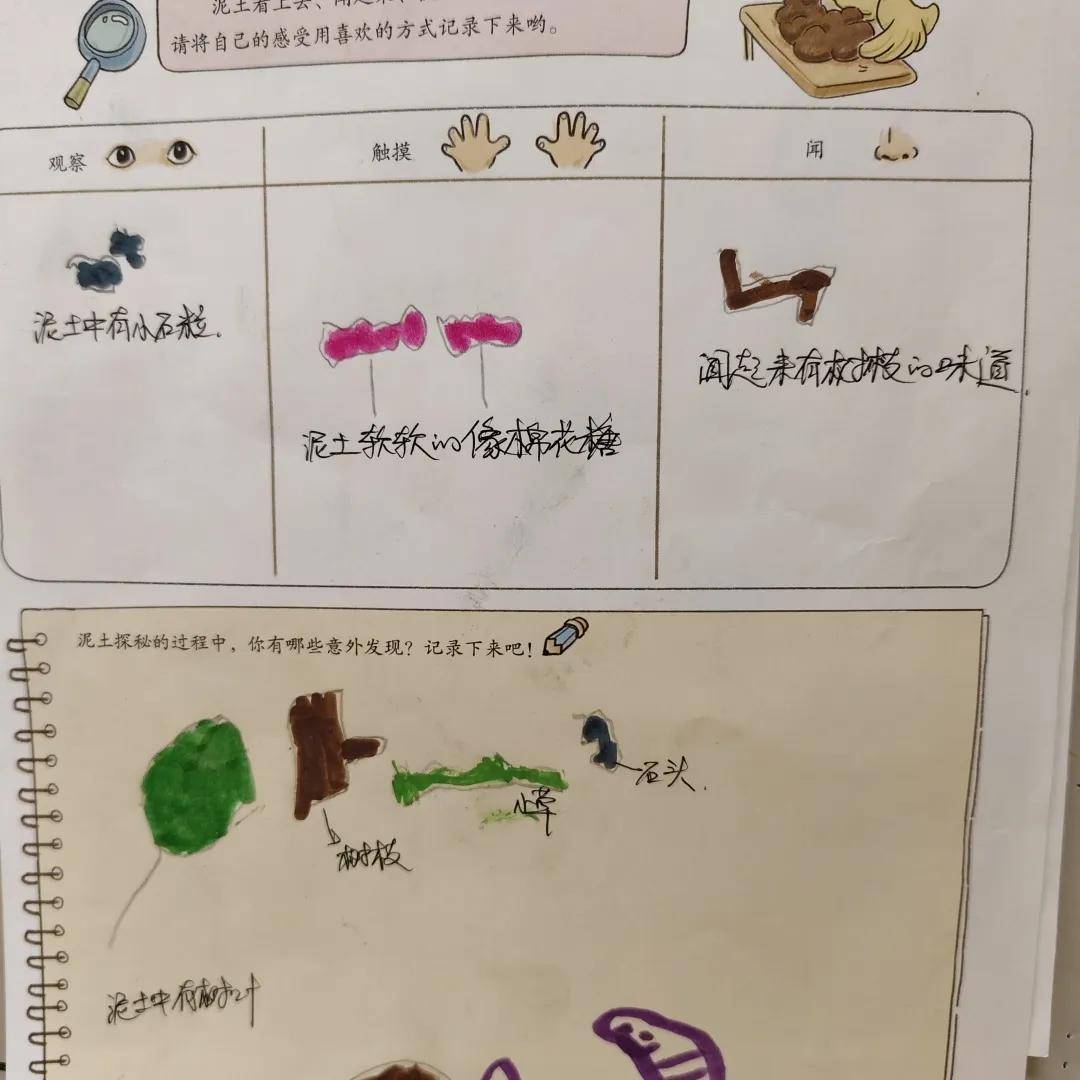 泥土看上去、闻起来、
请将自己的感受用喜欢的方式记录下来哟。
观察
触摸
闻
泥土中有小石粒.
泥土软软的像棉花糖
闻起来有树枝的味道.
泥土探秘的过程中，你有哪些意外发现？记录下来吧！
石头.
小草
树枝
泥土中有树叶